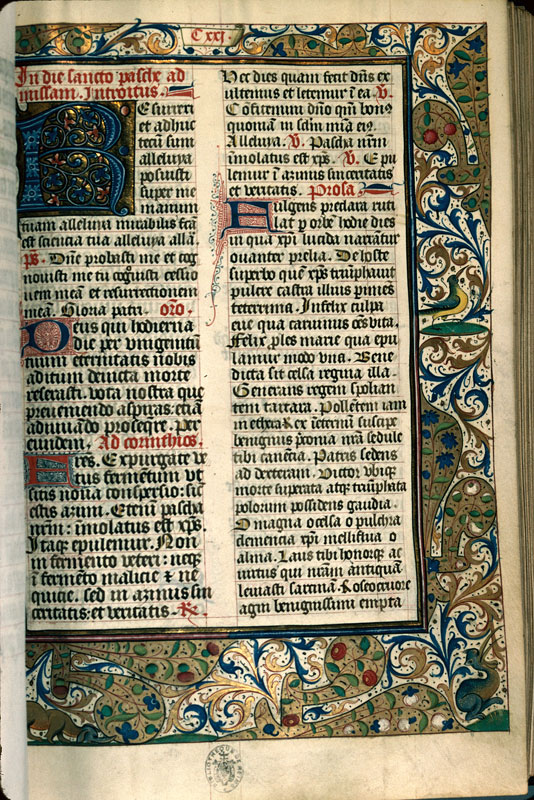 Cxxi.
In die sancto pasche ad
missam. Introitus.
Resurrexi
et adhuc
tecũ sum
alleluya
posuisti
super me
manum
tuam alleluya mirabilis fcã
est sciencia tua alleluya allã.
ps. Dñe probasti me et cog
nouisti me tu cognouisti cessio
nem meã et resurrectionem
meã. Gloria patri. oro.
Deus qui hodierna
die per vnigenitũ
tuum eternitatis nobis
aditum deuicta morte
reserasti. vota nostra que
preueniendo aspiras: etiã
adiuuãdo proseqre. Per
eundem. Ad corinthios.
Fres. Expurgate ve
tus fermẽtum vt
sitis noua conspersio: sic
estis azimi. Eteni pascha
nrm: ĩmolatus est xp̃s.
Itaqꝫ epulemur. Non
in fermento veteri: neqꝫ
ĩ fermẽto malicie ⁊ ne
quicie. sed in azimis sin
ceritatis: et veritatis. ℟.
Hec dies quam fecit dñs ex
ultemus et letemur ĩ ea. ℣.
Cõfitemini dño qm̃ bonꝰ
quoniam in sclm̃ mĩa eiꝰ.
Alleluya. ℣. Pascha nrm̃
ĩmolatus est xp̃s. ℣. Epu
lemur ĩ azimis sinceritatis
et veritatis. Prosa.
Fulgens preclara ruti
lat p orbẽ hodie dies
in qua xp̃i lucida narratur
ouanter prelia. De hoste
superbo quẽ xp̃s triũphauit
pulcre castra illius perimẽs
teterrima. Infelix culpa
eue qua caruimus oẽs vita.
Felix ples marie qua epu
lamur modo vna. Bene
dicta sit celsa regina illa.
Generans regem spolian
tem tartara. Pollẽtem iam
in ethera. Rex ĩ eternũ suscipe
benignus pconia nrã sedule
tibi canẽtia. Patris sedens
ad dexteram. Victor vbiqꝫ
morte superata atqꝫ triũphata
polorum possidens gaudia.
O magna o celsa o pulchra
clemencia xp̃i melliflua o
alma. Laus tibi honorqꝫ ac
virtus qui nrãm antiquã
leuiasti sarcinã. Roseo cruore
agni benignissimi empta